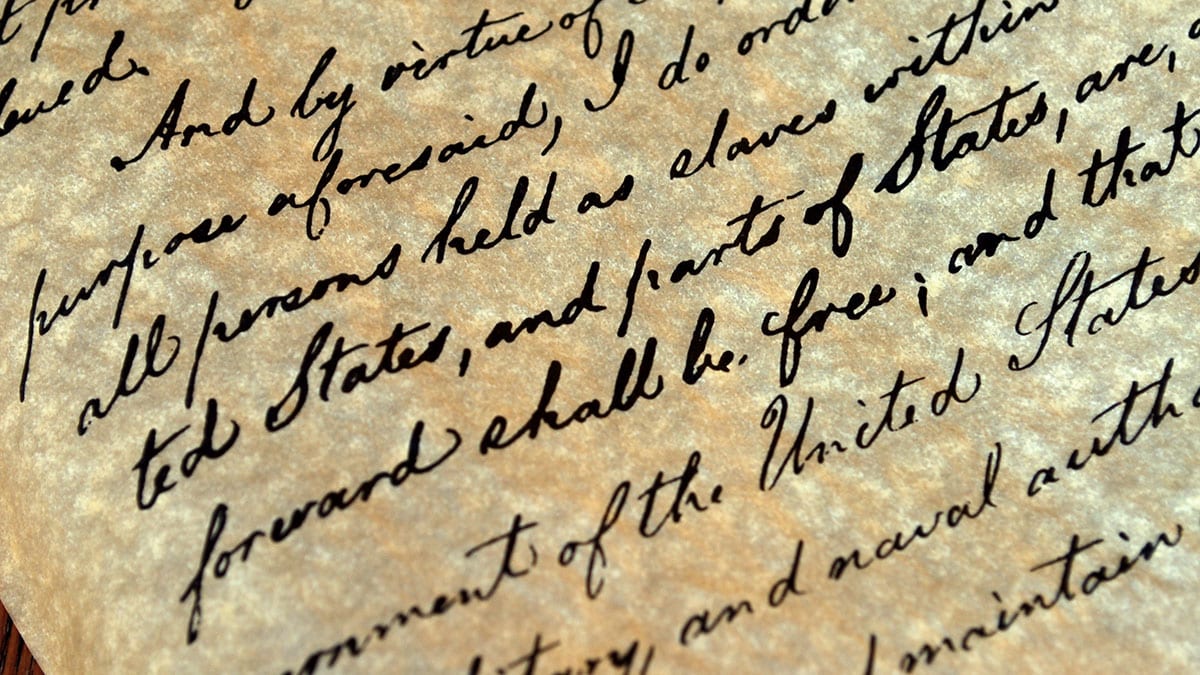 And by virtue of
purpose aforesaid, I do
all persons held as slaves within
ted States, and parts of States, are,
forward shall be free; and that
of the United States
and naval
maintain